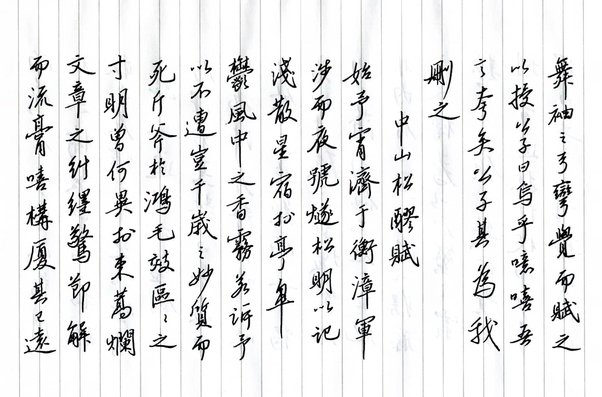 舞袖之弓彎覺而賦之
以授公子曰烏乎噫嘻吾
言夸矣公子其為我
刪之
中山松醪賦
始予宵濟于衡漳軍
涉而夜號燧松明以記
淺散星宿於亭皋
鬱風中之香霧若訴予
以不遭豈千歲之妙質而
死斤斧於鴻毛效區區之
寸明曾何異於束蒿爛
文章之糾纆驚節解
而流膏嘻構廈其已遠